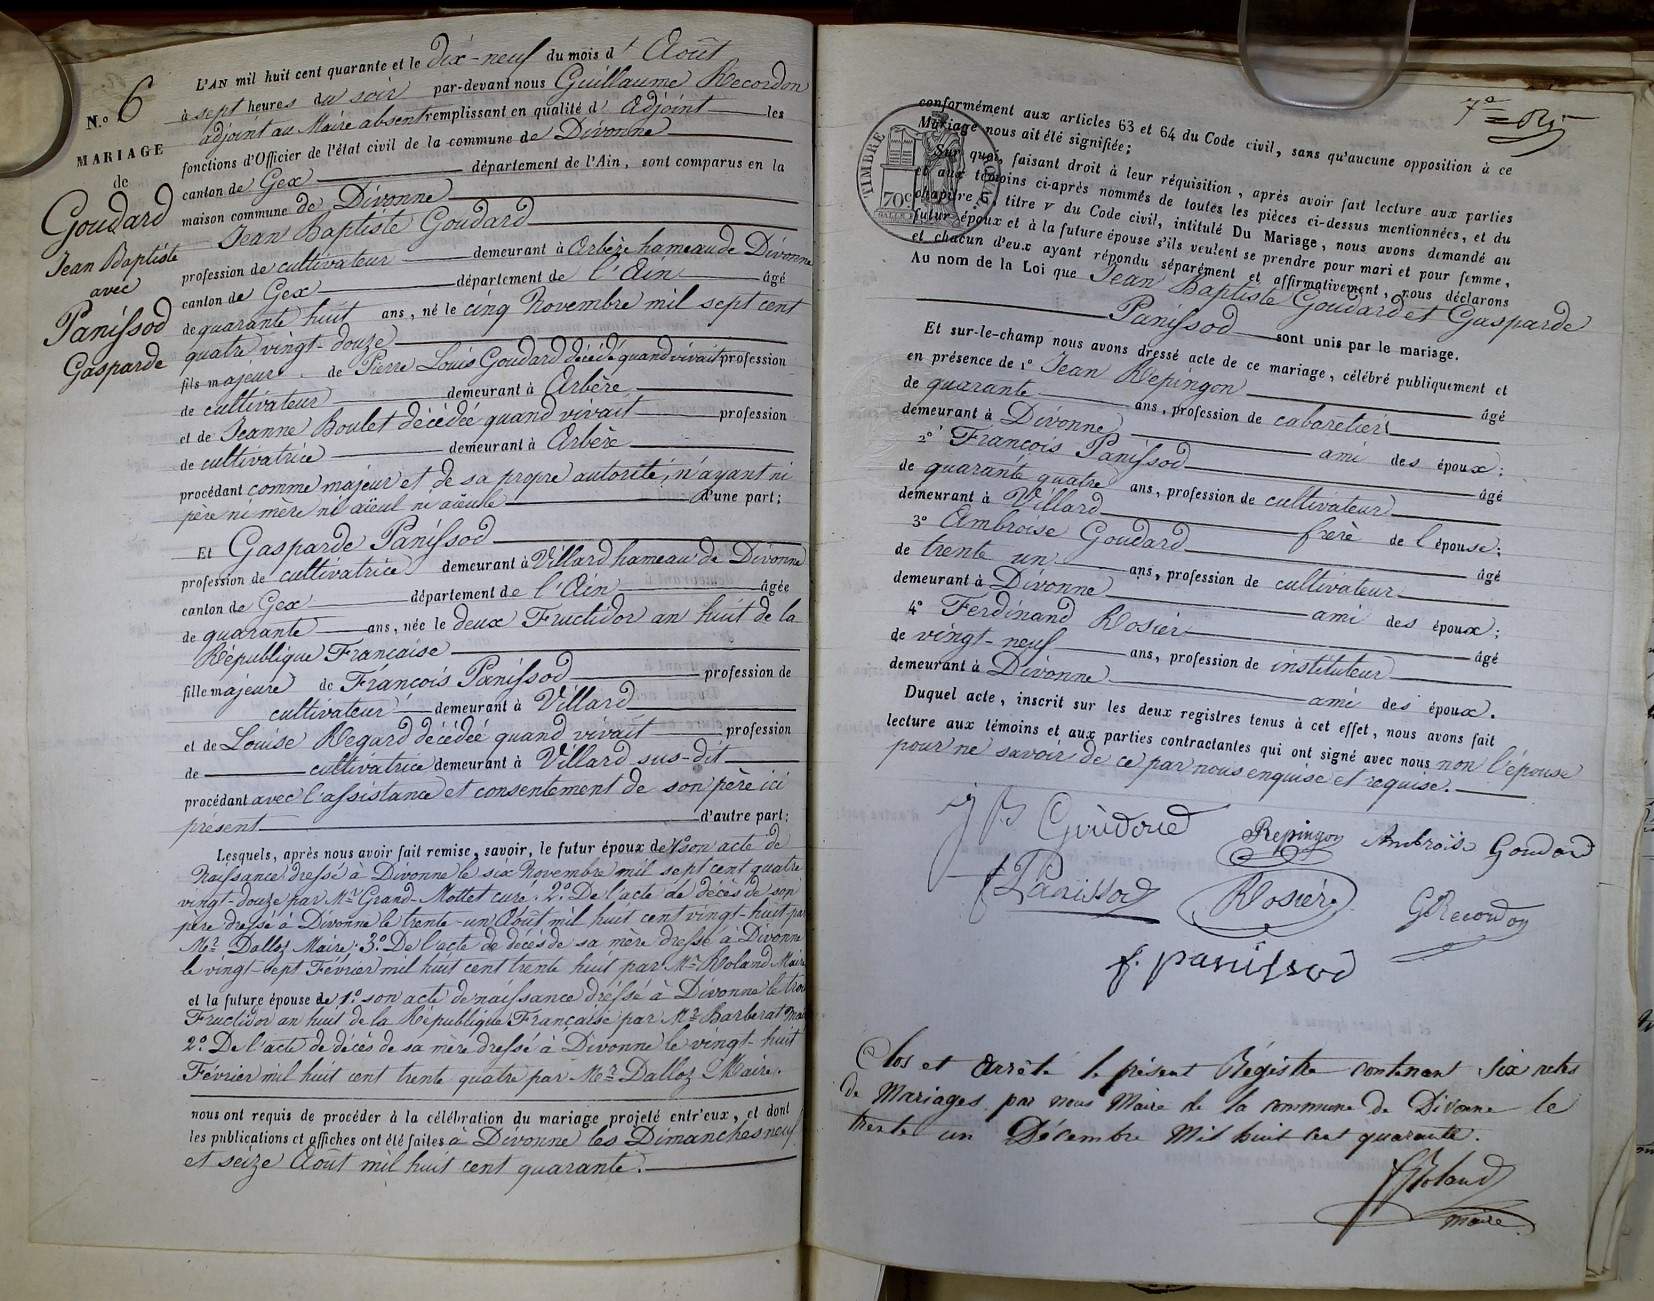 N.o 6
MARIAGE
de
Goudard
Jean Baptiste
avec
Panissod
Gasparde
L'AN mil huit cent quarante et le dix-neuf du mois d' Août
à sept heures du soir par-devant nous Guillaume Recordon
adjoint au Maire absent remplissant en qualité d' Adjoint les
fonctions d'Officier de l'état civil de la commune de Divonne
canton de Gex département de l'Ain, sont comparus en la
maison commune de Divonne
Jean Baptiste Goudard
profession de cultivateur demeurant à Arbère hameau de Divonne
canton de Gex département de l'Ain âgé
de quarante huit ans, né le cinq Novembre mil sept cent
quatre vingt-douze
fils majeur de Pierre Louis Goudard décédé quand vivait profession
de cultivateur demeurant à Arbère
et de Jeanne Boulet décédée quand vivait profession
de cultivatrice demeurant à Arbère
procédant comme majeur et de sa propre autorité, n'ayant ni
père ni mère ni aïeul ni aïeule d'une part;
Et Gasparde Panissod
profession de cultivatrice demeurant à Villard hameau de Divonne
canton de Gex département de l'Ain âgée
de quarante ans, née le deux Fructidor an huit de la
République Française
fille majeure de François Panissod profession de
cultivateur demeurant à Villard
et de Louise Regard décédée quand vivait profession
de cultivatrice demeurant à Villard sus-dit
procédant avec l'assistance et consentement de son père ici
présent d'autre part;
Lesquels, après nous avoir fait remise, savoir, le futur époux de 1o son acte de
Naissance dressé à Divonne le six Novembre mil sept cent quatre
vingt-douze par Mr Grand-Mottet curé. 2o De l'acte de décès de son
père dressé à Divonne le trente-un Août mil huit cent vingt-huit par
Mr Dalloz Maire. 3o De l'acte de décès de sa mère dressé à Divonne
le vingt-sept Février mil huit cent trente huit par Mr Roland Maire
et la future épouse de 1o son acte de naissance dressé à Divonne le trois
Fructidor an huit de la République Française par Mr Barberat Maire
2o De l'acte de décès de sa mère dressé à Divonne le vingt-huit
Février mil huit cent trente quatre par Mr Dalloz Maire.
nous ont requis de procéder à la célébration du mariage projeté entr'eux, et dont
les publications et affiches ont été faites à Divonne les Dimanches neuf
et seize Août mil huit cent quarante.
TIMBRE ROYAL
70c
conformément aux articles 63 et 64 du Code civil, sans qu'aucune opposition à ce
Mariage nous ait été signifiée;
Sur quoi, faisant droit à leur réquisition, après avoir fait lecture aux parties
et aux témoins ci-après nommés de toutes les pièces ci-dessus mentionnées, et du
chapitre VI, titre V du Code civil, intitulé Du Mariage, nous avons demandé au
futur époux et à la future épouse s'ils veulent se prendre pour mari et pour femme,
et chacun d'eux ayant répondu séparément et affirmativement, nous déclarons
Au nom de la Loi que Jean Baptiste Goudard et Gasparde
Panissod sont unis par le mariage.
Et sur-le-champ nous avons dressé acte de ce mariage, célébré publiquement et
en présence de 1o Jean Repingon âgé
de quarante ans, profession de cabaretier
demeurant à Divonne ami des époux;
2o François Panissod âgé
de quarante quatre ans, profession de cultivateur
demeurant à Villard frère de l'épouse;
3o Ambroise Goudard âgé
de trente un ans, profession de cultivateur
demeurant à Divonne ami des époux;
4o Ferdinand Rosier âgé
de vingt-neuf ans, profession de instituteur
demeurant à Divonne ami des époux.
Duquel acte, inscrit sur les deux registres tenus à cet effet, nous avons fait
lecture aux témoins et aux parties contractantes qui ont signé avec nous non l'épouse
pour ne savoir de ce par nous enquise et requise.
Repingon Ambroise Goudard
f Panissod Rosier GRecordon
f. panissod
Clos et arrêté le présent Régistre contenant six actes
de Mariages par nous Maire de la commune de Divonne le
trente un Décembre Mil huit cent quarante.
Roland
maire